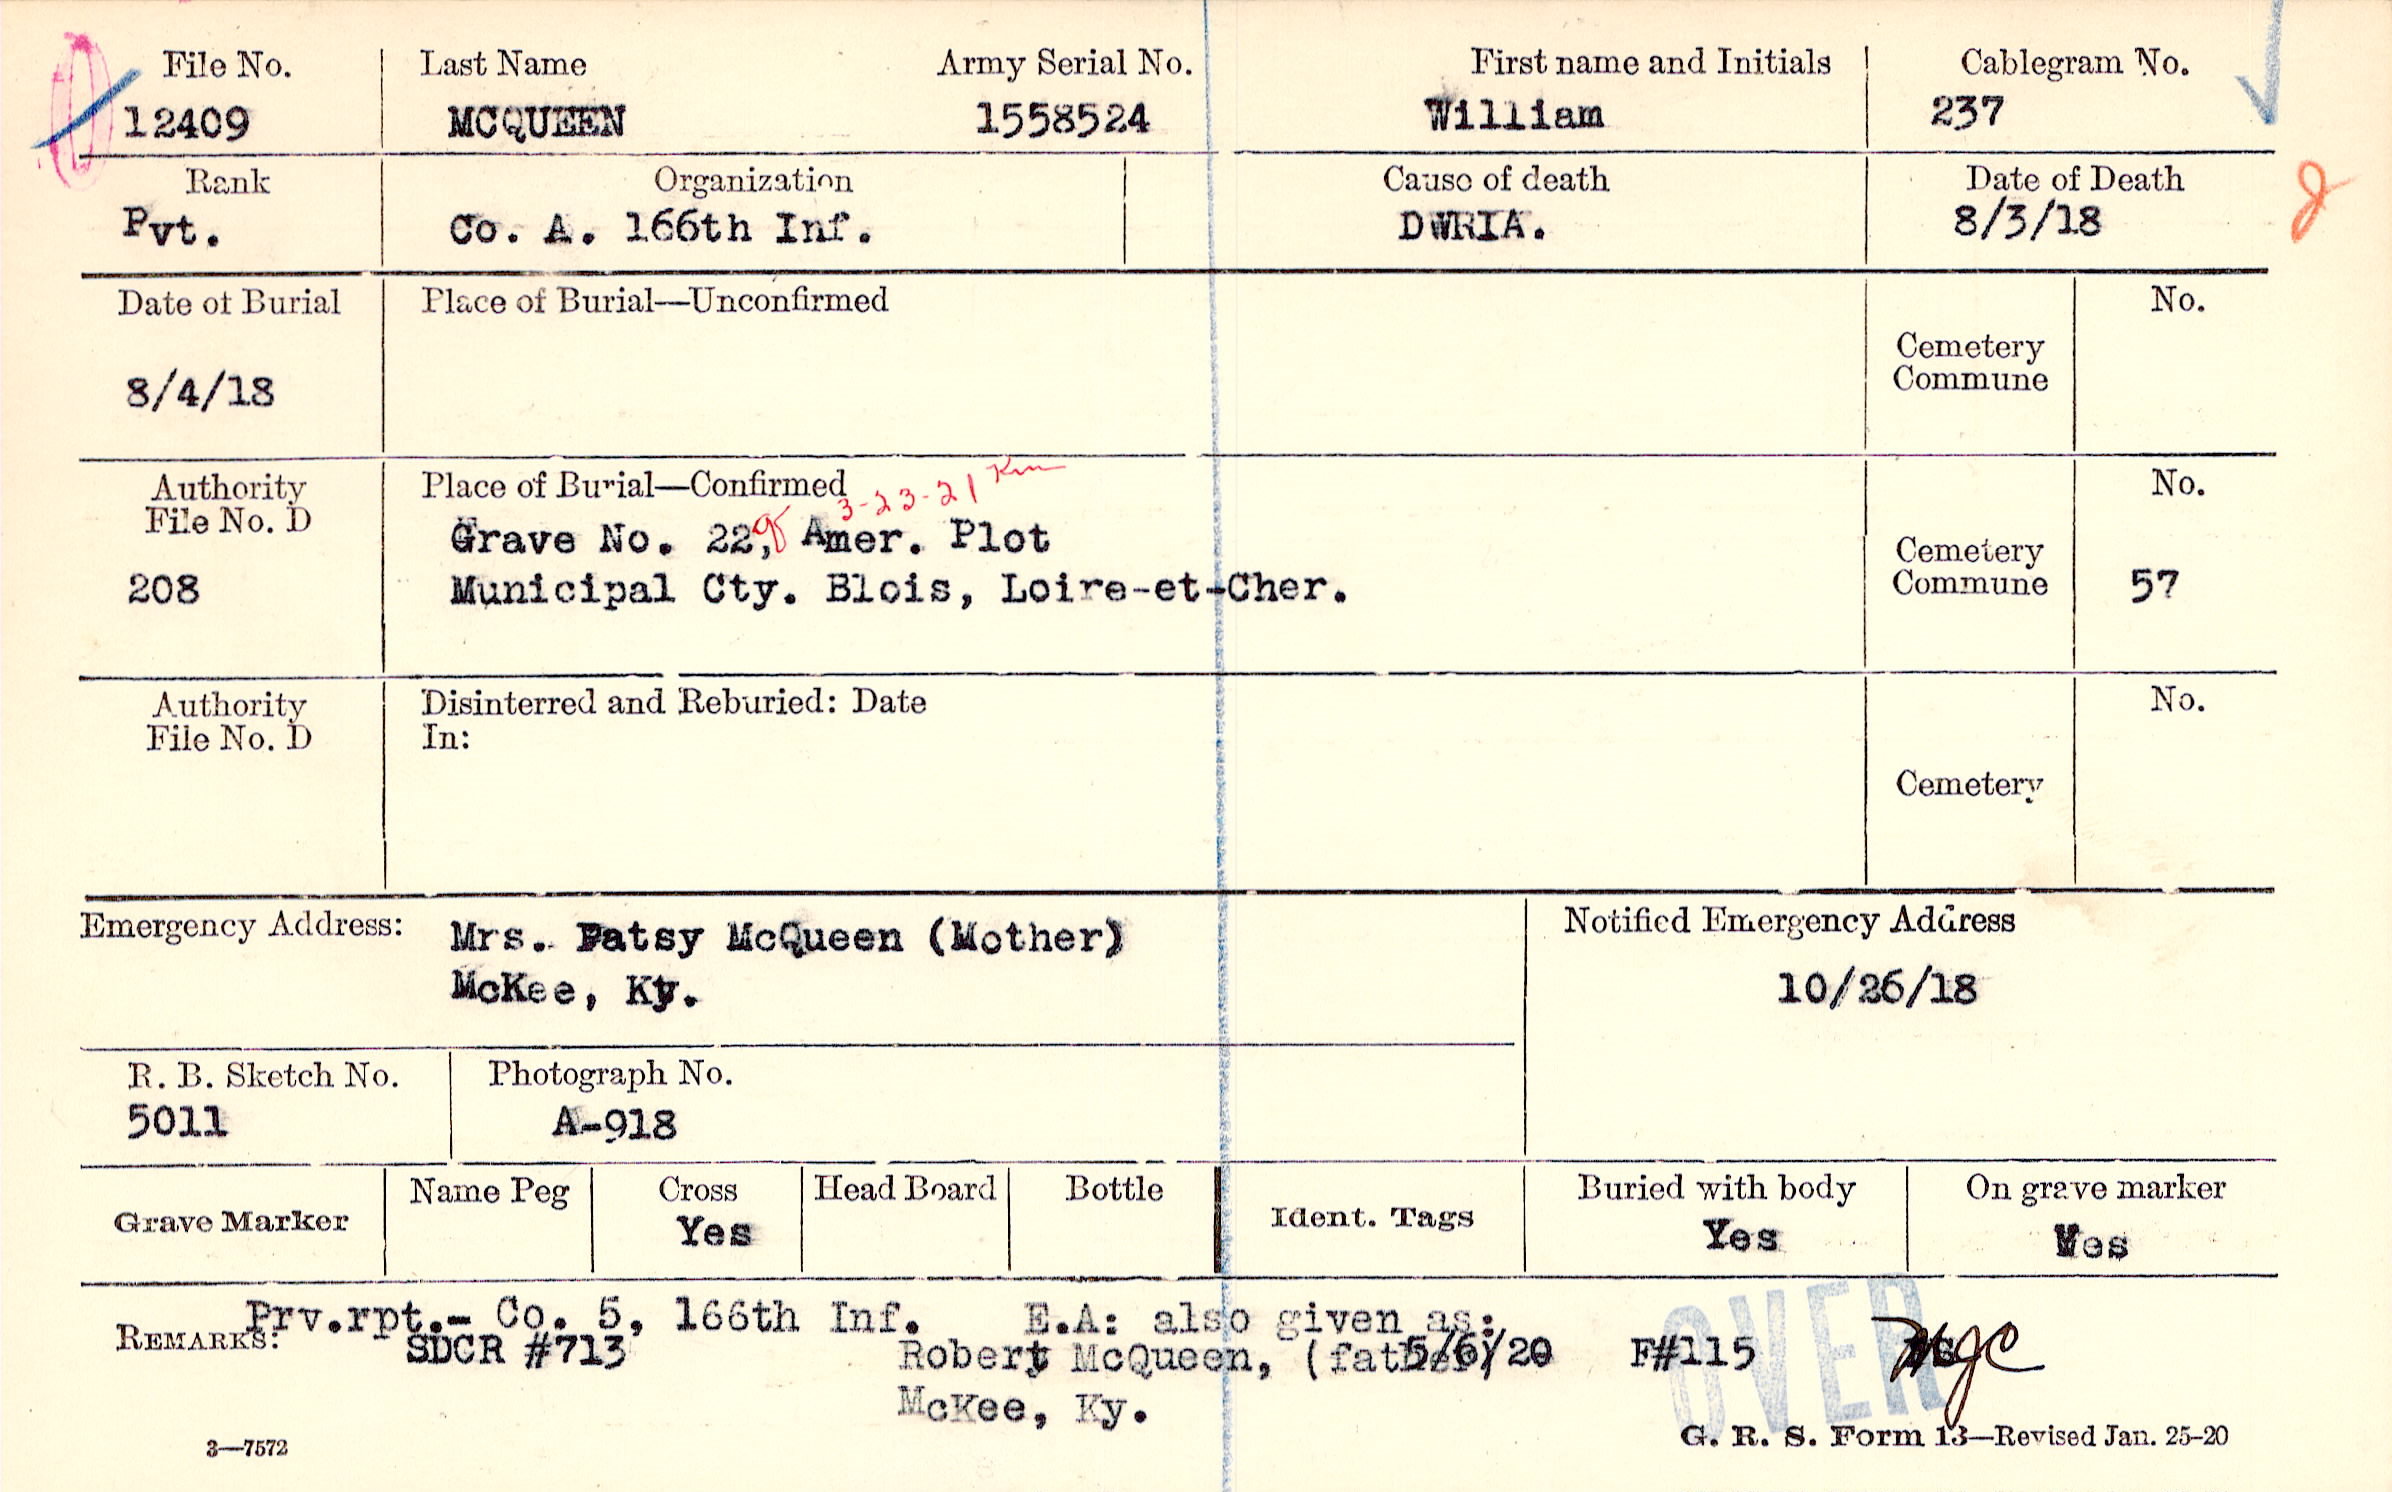 File No. Last Name Army Serial No. First name and Initials Cablegram No.
12409 MCQUEEN 1558524 William 237
Rank Organization Cause of death Date of Death
Pvt. Co. A. 166th Inf. DWRIA. 8/3/18
Date of Burial Place of Burial—Unconfirmed No.
Cemetery
Commune
8/4/18
Authority Place of Burial—Confirmed No.
File No. D 3-23-21
Grave No. 22, Amer. Plot
Cemetery
208 Municipal Cty. Blois, Loire-et-Cher. Commune 57
Authority Disinterred and Reburied: Date No.
File No. D In:
Cemetery
Emergency Address: Mrs. Patsy McQueen (Mother) Notified Emergency Address
McKee, Ky. 10/26/18
R. B. Sketch No. Photograph No.
5011 A-918
Grave Marker Name Peg Cross Head Board Bottle Ident. Tags Buried with body On grave marker
Yes Yes Yes
Prv.rpt.- Co. 5, 166th Inf. E.A: also given as:
REMARKS: SDCR #713 Robert McQueen, (father) 5/6/20 F#115
McKee, Ky.
OVER
3—7572 G. R. S. Form 13—Revised Jan. 25-20